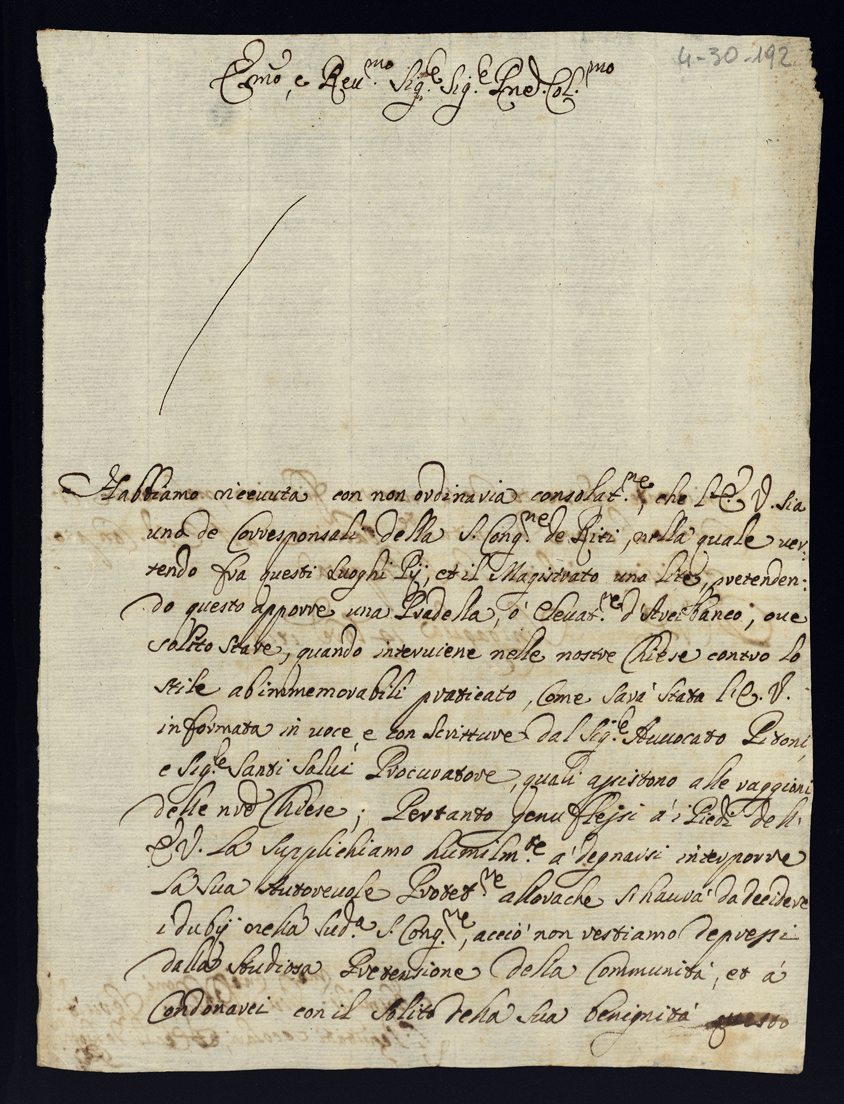 4-30-192
E.mo, e Reu.mo Sig.e Sig.e Pne Col.mo
Habbiamo riceuuta con non ordinaria consolat.ne, che l'E. V. sia
uno de Corresponsali della S. Cong.ne de Riti, nella quale uer,
tendo fra questi Luoghi Pij, et il Magistrato una lite, pretenden:
do questo apporre una Pradella, ò Eleuat.ne d'Auei banco, oue
solito stare, quando interuiene nelle nostre Chiese contro lo
stile ab immemorabili praticato, come sarà stata l'E. V.
informata in uoce e con scritture dal Sig.e Auuocato Pitoni,
e Sig.e Santi Salui Procuratore, quali assistono alle raggioni
delle nre Chiese; Pertanto genuflessi à i Piedi dell'
E. V. la supplichiamo humilm.te à degnarsi interporre
la sua Autoreuole Protet.ne allorache si haurà da decidere
i dubij nella sud.a S. Cong.ne, acciò non restiamo depressi
dalla studiosa Pretensione della Communità, et à
Condonarci con il solito della sua benignità questo